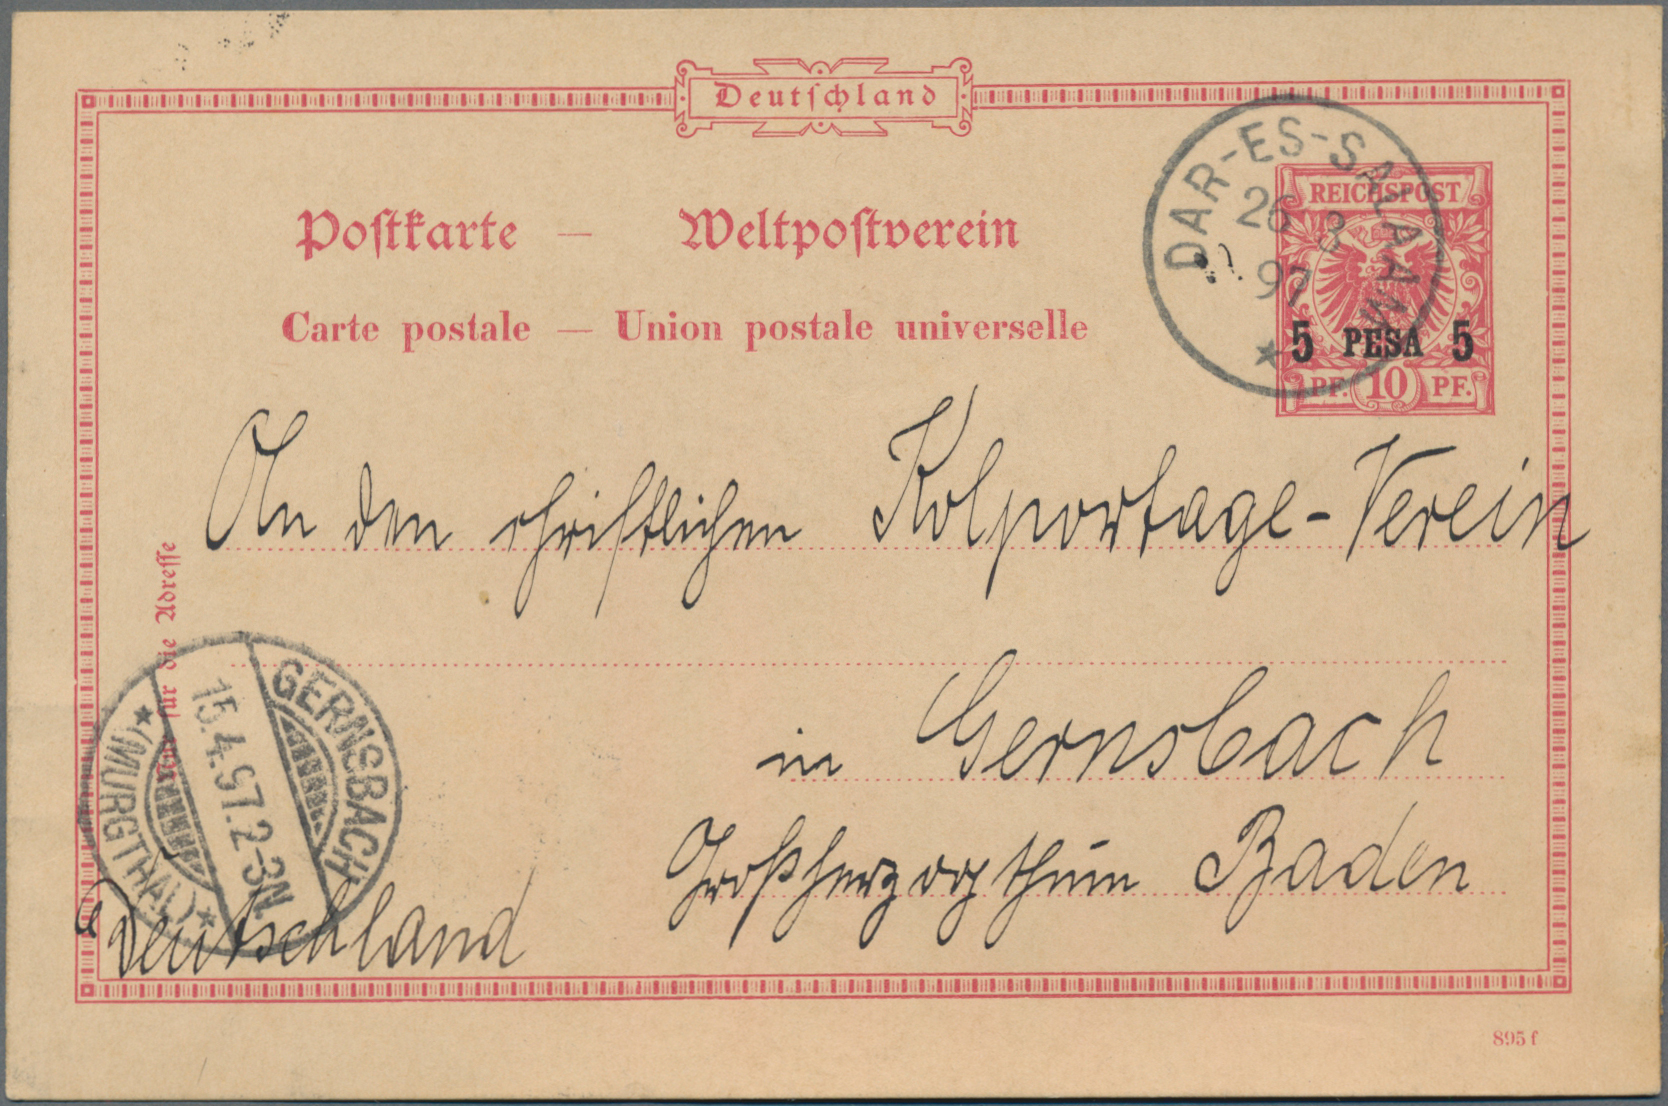 Deutschland
Postkarte — Weltpostverein
Carte postale — Union postale universelle
DAR-ES-SALAAM
26 3
97
REICHSPOST
5 PESA 5
PF. 10 PF.
An den christlichen Kolportage-Verein
in Gernsbach
Großherzogthum Baden
Deutschland
Nur für die Adresse
GERNSBACH
15.4.97.2-3N.
(MURGTHAL)
895 f